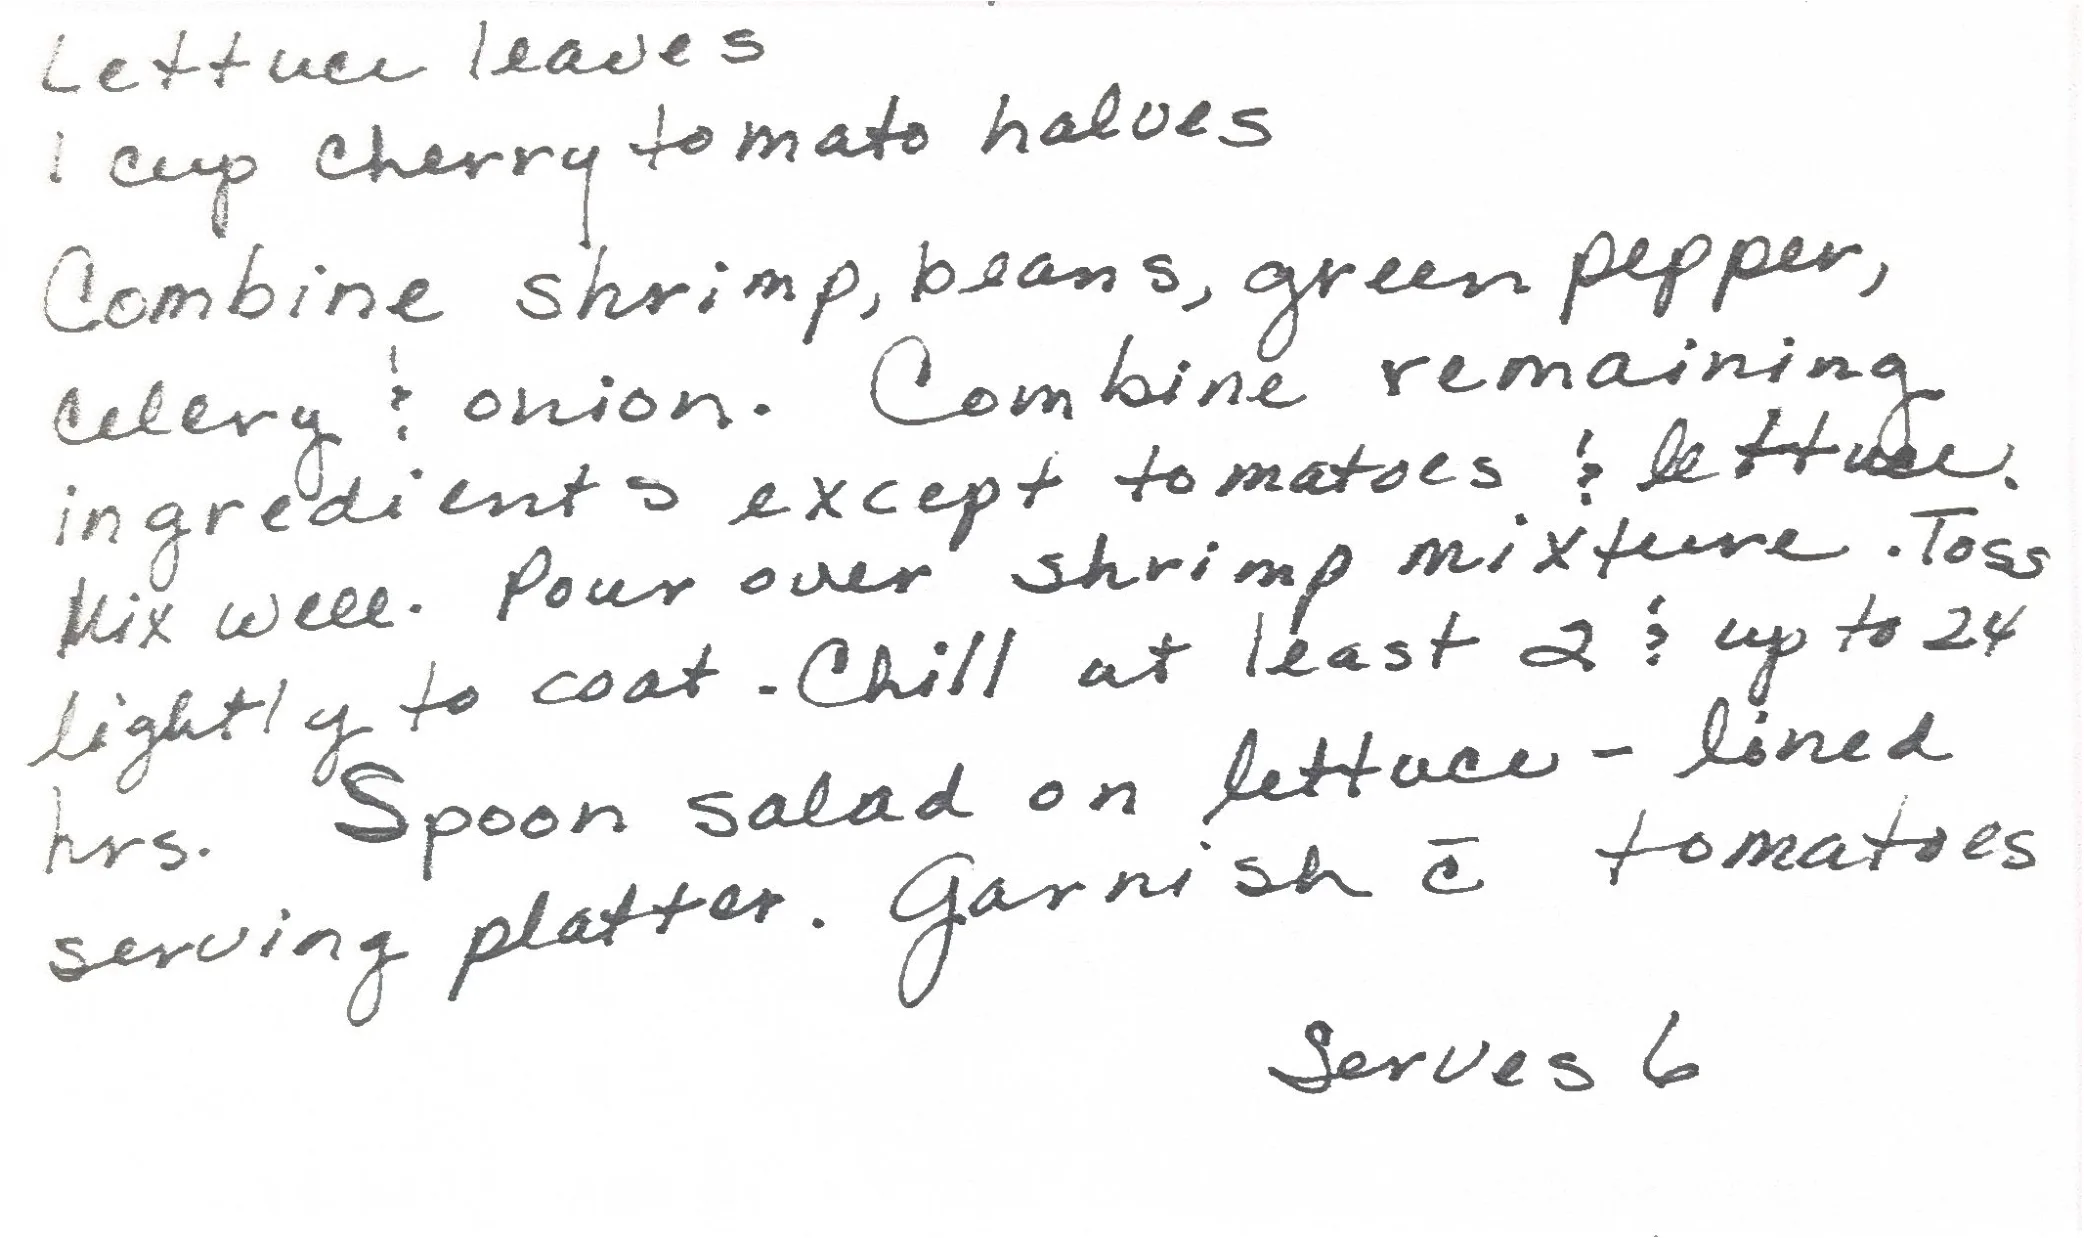 Lettuce leaves
1 cup cherry tomato halves
Combine shrimp, beans, green pepper,
celery & onion. Combine remaining
ingredients except tomatoes & lettuce.
Mix well. Pour over shrimp mixture. Toss
lightly to coat. Chill at least 2 & up to 24
hrs. Spoon salad on lettuce-lined
serving platter. Garnish c̄ tomatoes
Serves 6